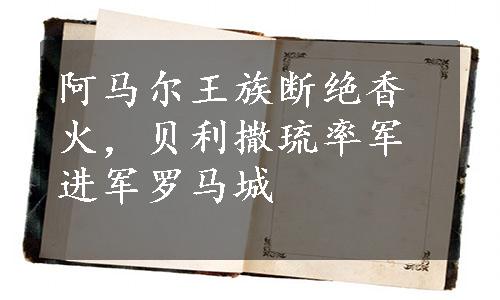 阿马尔王族断绝香
火，贝利撒琉率军
进军罗马城